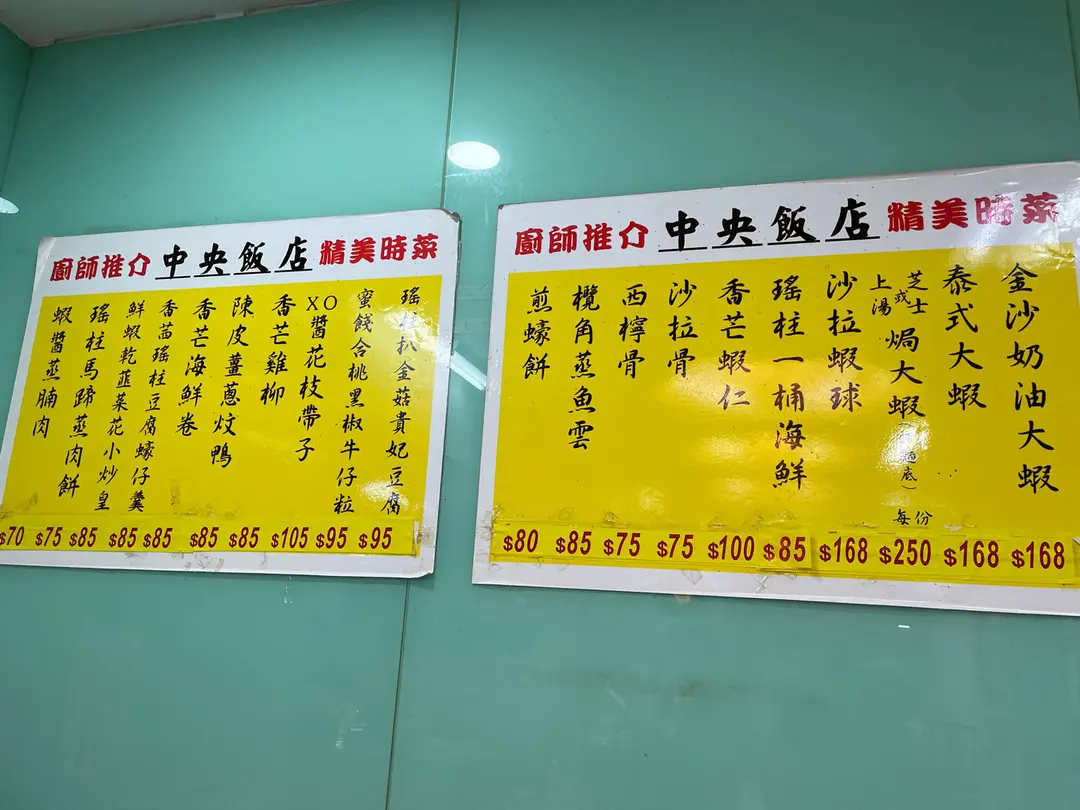 廚師推介 中央飯店 精美時菜
瑤柱扒金菇貴妃豆腐
蜜餞合桃黑椒牛仔粒
XO醬花枝帶子
香芒雞柳
陳皮薑蔥炆鴨
香芒海鮮卷
香茜瑤柱豆腐蠔仔羹
鮮蝦乾韮菜花小炒皇
瑤柱馬蹄蒸肉餅
蝦醬蒸腩肉
$70 $75 $85 $85 $85 $85 $85 $105 $95 $95
廚師推介 中央飯店 精美時菜
金沙奶油大蝦
泰式大蝦
芝士或上湯焗大蝦
每份
沙拉蝦球
瑤柱一桶海鮮
香芒蝦仁
沙拉骨
西檸骨
欖角蒸魚雲
煎蠔餅
$80 $85 $75 $75 $100 $85 $168 $250 $168 $168